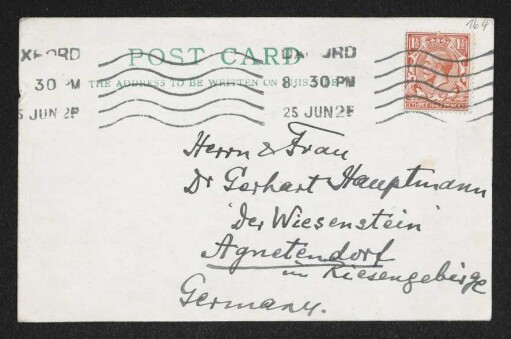 164
XFORD
30 PM
5 JUN 2
POST CARD
THE ADDRESS TO BE WRITTEN ON THIS
RD
8 30 PM
25 JUN 2
Herrn & Frau
Dr Gerhart Hauptmann
"Der Wiesenstein"
Agnetendorf
im Riesengebirge
Germany.